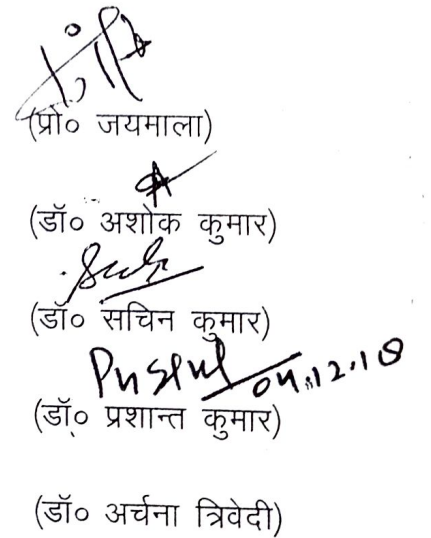 (प्रो० जयमाला)
(डॉ० अशोक कुमार)
(डॉ० सचिन कुमार)
04.12.18
(डॉ० प्रशान्त कुमार)
(डॉ० अर्चना त्रिवेदी)